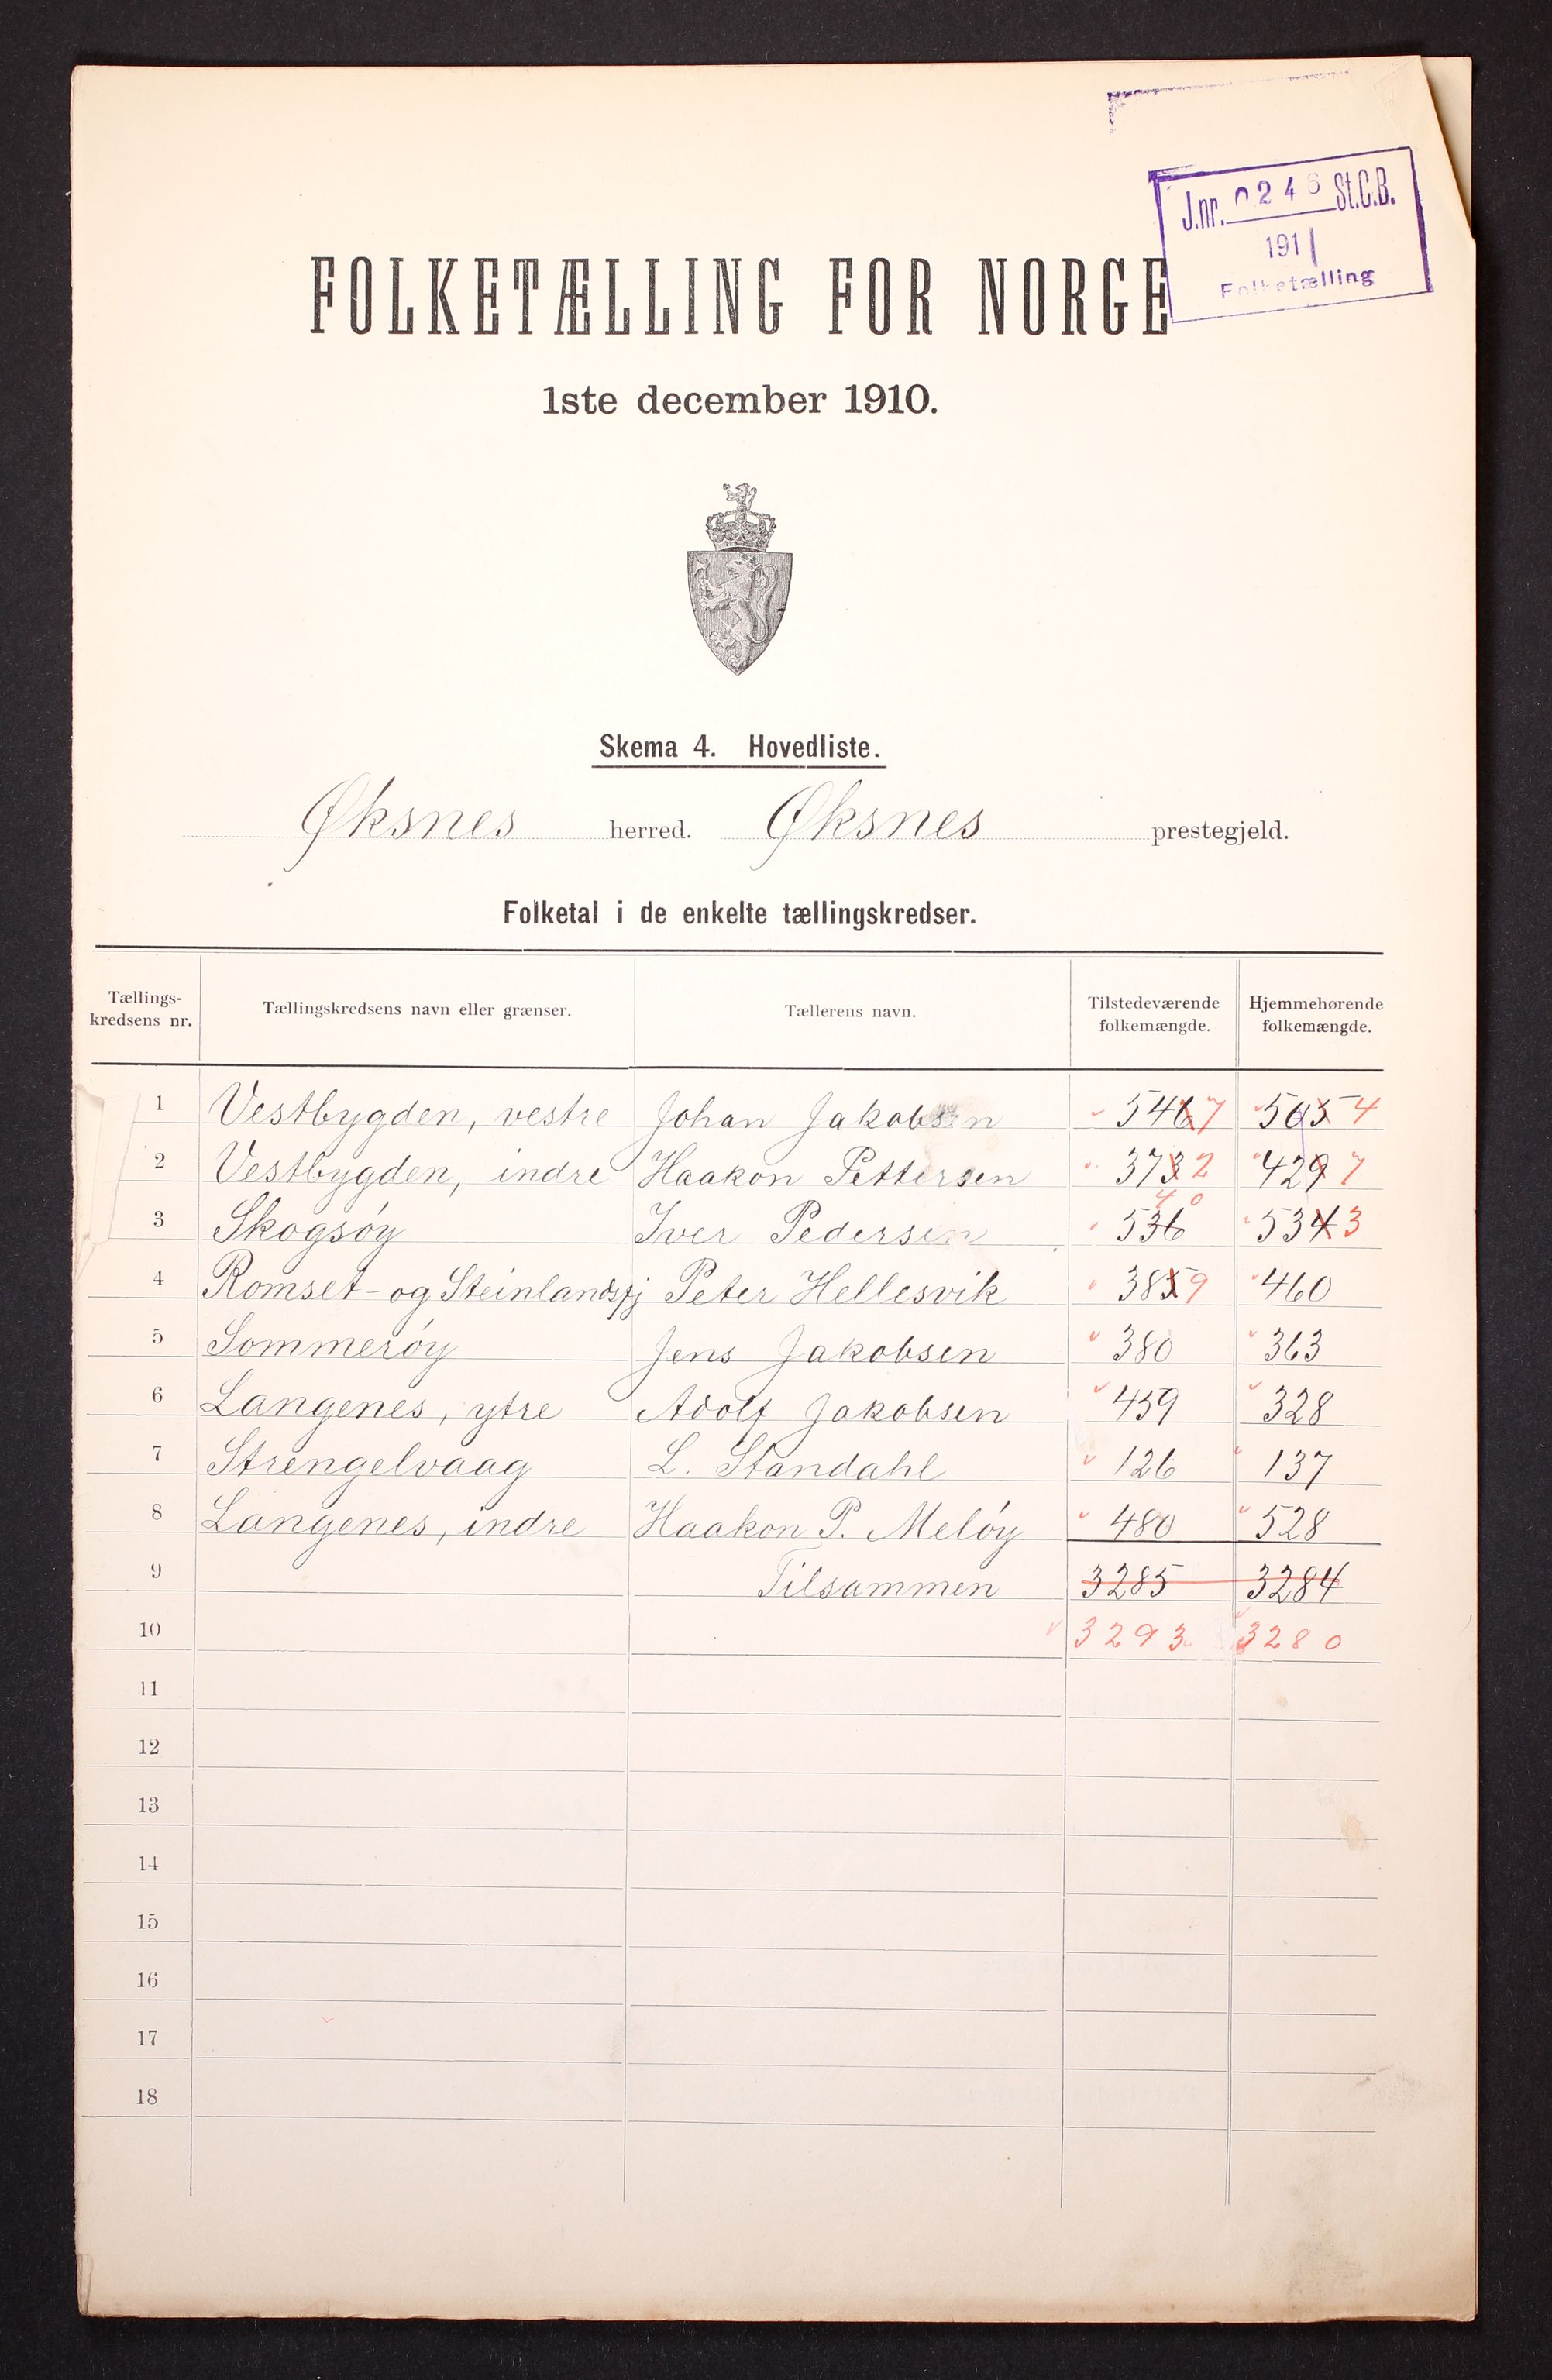 J.nr. 0246 St.C.B.
1911
Folketælling
FOLKETÆLLING FOR NORGE
1ste december 1910.
Skema 4. Hovedliste.
Øksnes herred. Øksnes prestegjeld.
Folketal i de enkelte tællingskredser.
Tællings-kredsens nr. Tællingskredsens navn eller grænser. Tællerens navn. Tilstedeværende folkemængde. Hjemmehørende folkemængde.
1 Vestbygden, vestre Johan Jakobsen 546 7 505 4
2 Vestbygden, indre Haakon Pettersen 373 2 429 7
3 Skogsøy Iver Pedersen 536 40 534 3
4 Romset- og Steinlandsfj Peter Hellesvik 385 9 460
5 Sommerøy Jens Jakobsen 380 363
6 Langenes, ytre Adolf Jakobsen 459 328
7 Strengelvaag L. Standahl 126 137
8 Langenes, indre Haakon P. Meløy 480 528
9 Tilsammen 3285 3284
10 3293 3280
11
12
13
14
15
16
17
18